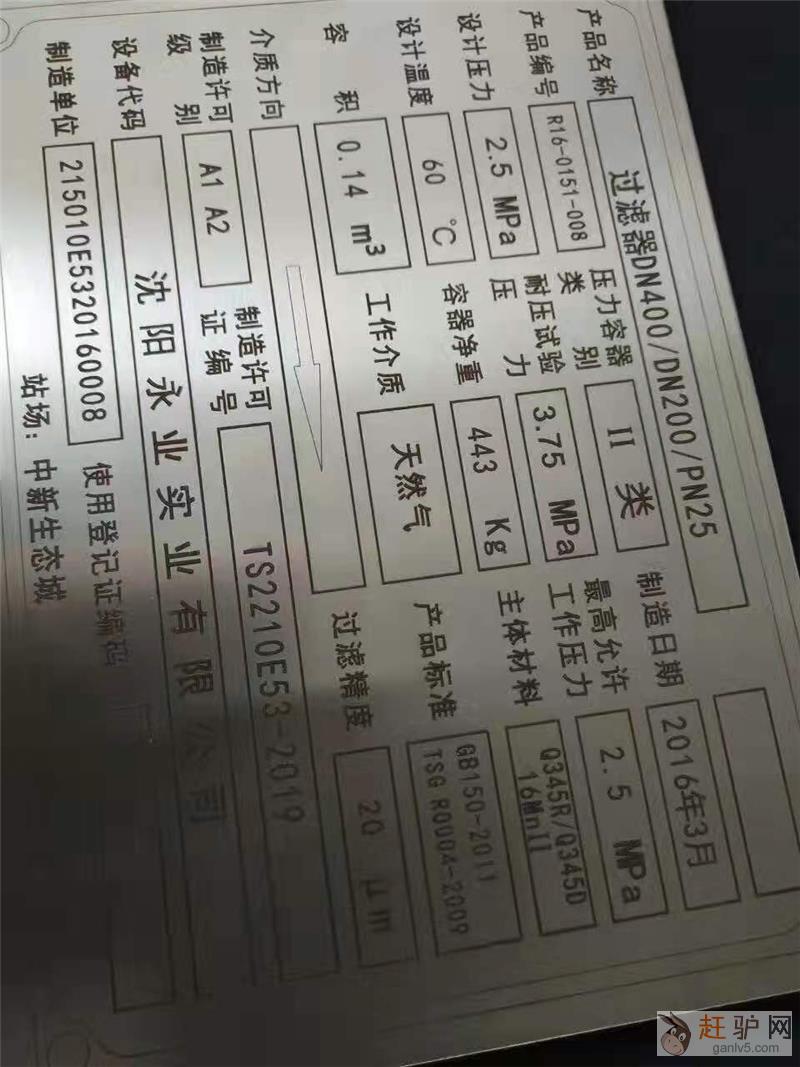 产品名称 过滤器DN400/DN200/PN25
产品编号 R16-0151-008 压力容器类别 II 类 制造日期 2016年3月
设计压力 2.5 MPa 耐压试验压力 3.75 MPa 最高允许工作压力 2.5 MPa
设计温度 60 ℃ 容器净重 443 Kg 主体材料 Q345R/Q345D 16MnII
容 积 0.14 m³ 工作介质 天然气 产品标准 GB150-2011 TSG R0004-2009
介质方向 过滤精度 20 μm
制造许可级别 A1 A2 制造许可证编号 TS2210E53-2019
设备代码 沈阳永业实业有限公司
制造单位 215010E5320160008 使用登记证编码
站场: 中新生态城
赶驴网
ganlv5.com